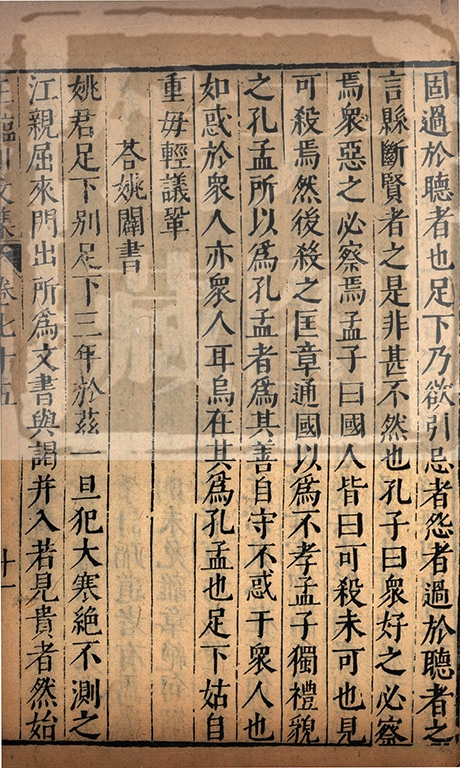 固過於聽者也足下乃欲引忌者怨者過於聽者之
言縣斷賢者之是非甚不然也孔子曰衆好之必察
焉衆惡之必察焉孟子曰國人皆曰可殺未可也見
可殺焉然後殺之匡章通國以爲不孝孟子獨禮貌
之孔孟所以爲孔孟者爲其善自守不惑于衆人也
如惑於衆人亦衆人耳烏在其爲孔孟也足下姑自
重毋輕議鞏
荅姚闢書
姚君足下别足下三年於茲一旦犯大寒絶不測之
江親屈來門出所爲文書與謁并入若見貴者然始
王臨川文集 卷七十五 十一